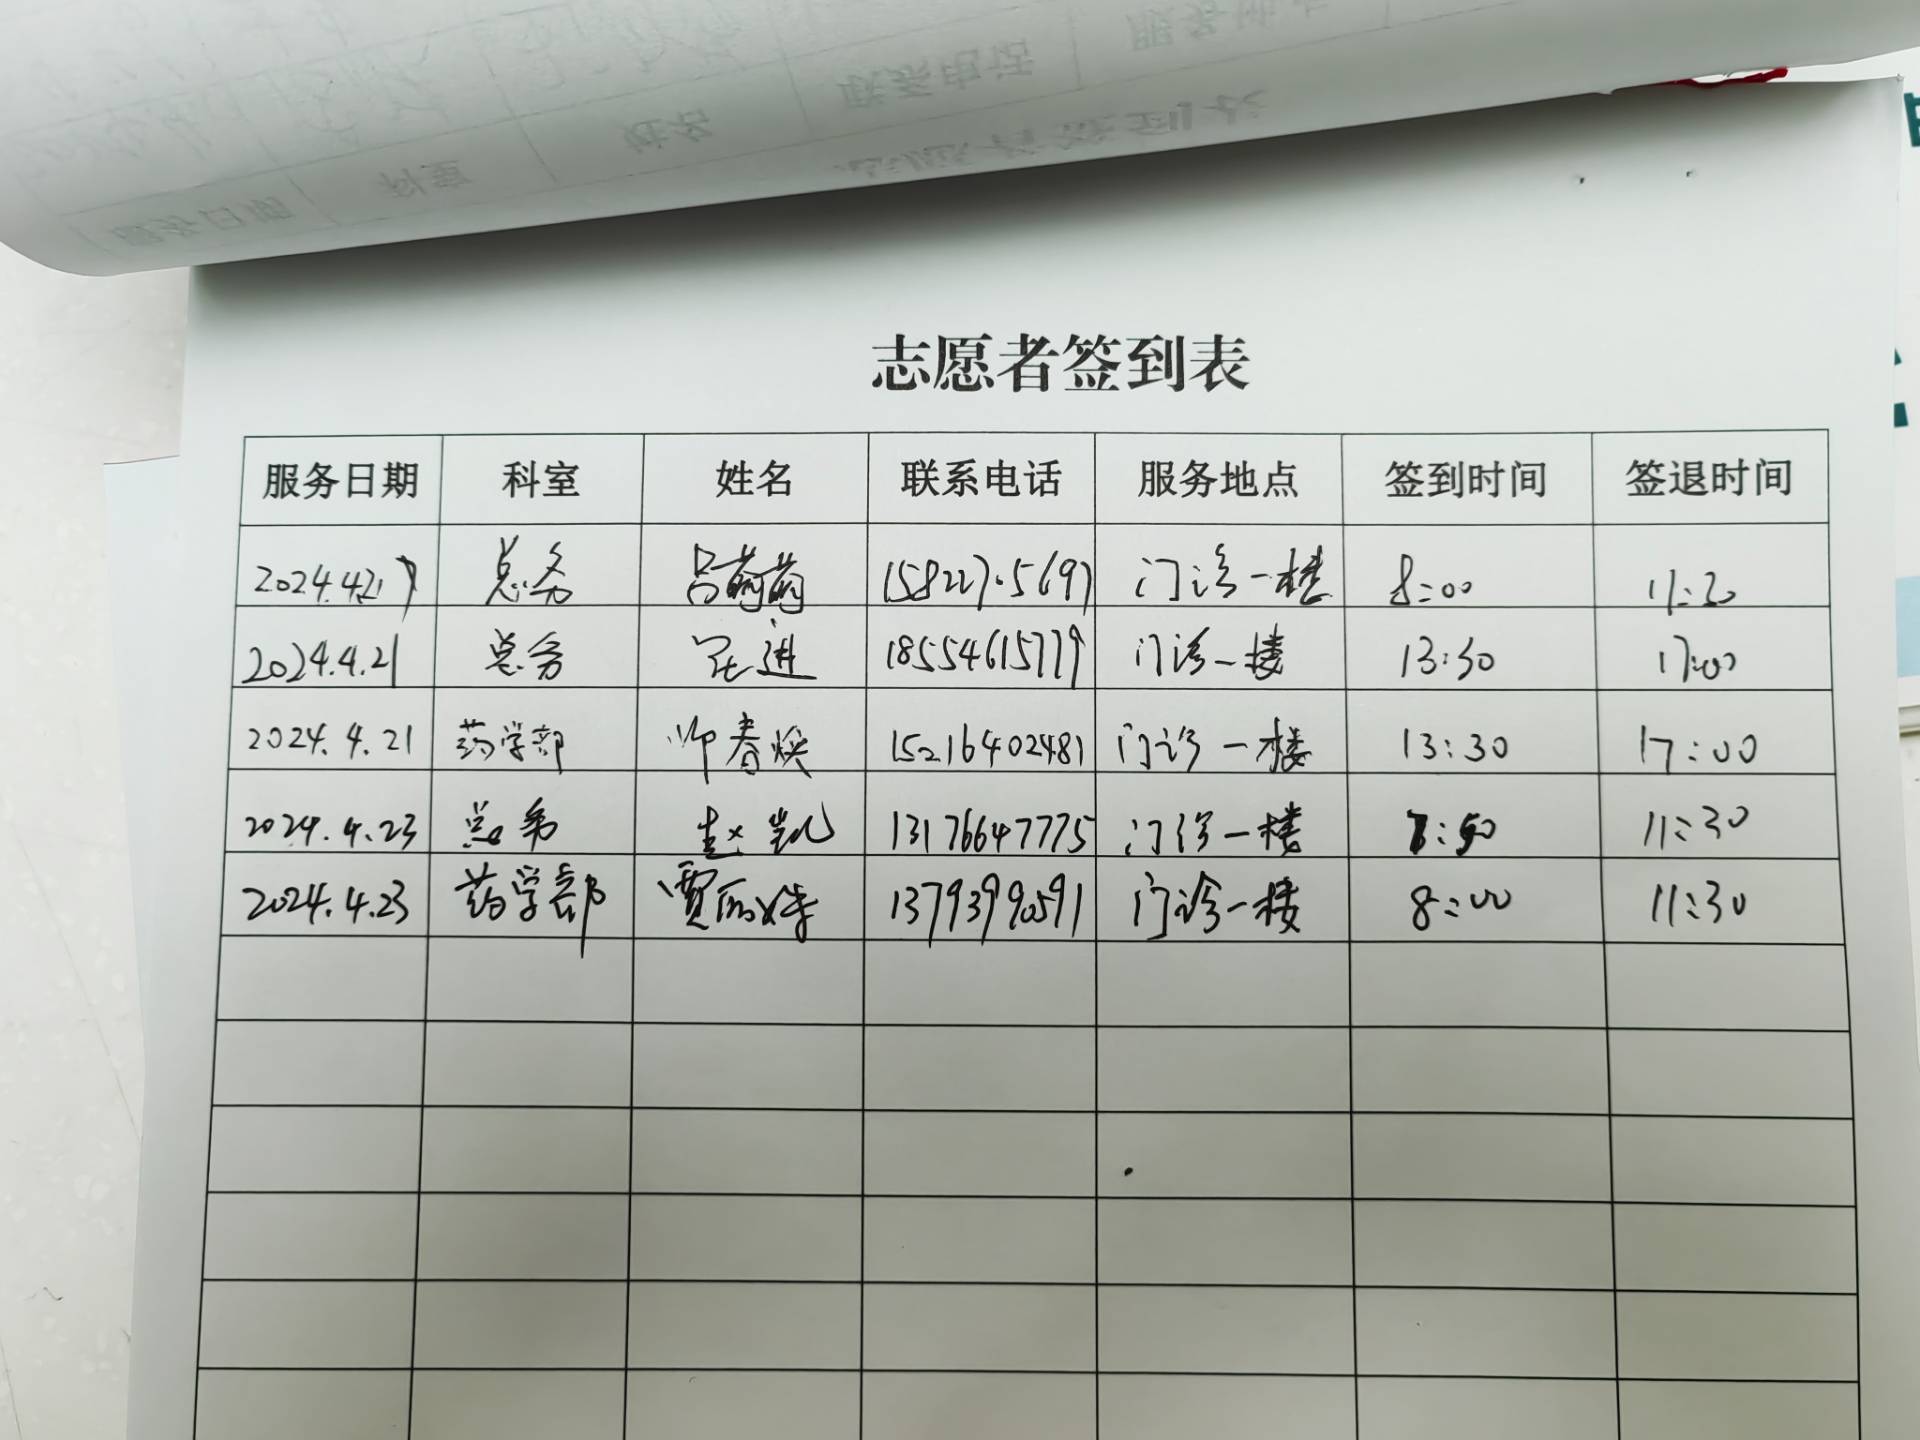 志愿者签到表
服务日期 科室 姓名 联系电话 服务地点 签到时间 签退时间
2024.4.21 总务 吕萌萌 门诊一楼 8:00 11:30
2024.4.21 总务 进 18554615779 门诊一楼 13:30 17:00
2024.4.21 药学部 春焕 15216402481 门诊一楼 13:30 17:00
2024.4.23 总务 赵凯 13176647775 门诊一楼 11:30
2024.4.23 药学部 贾丽婷 13793990591 门诊一楼 8:00 11:30